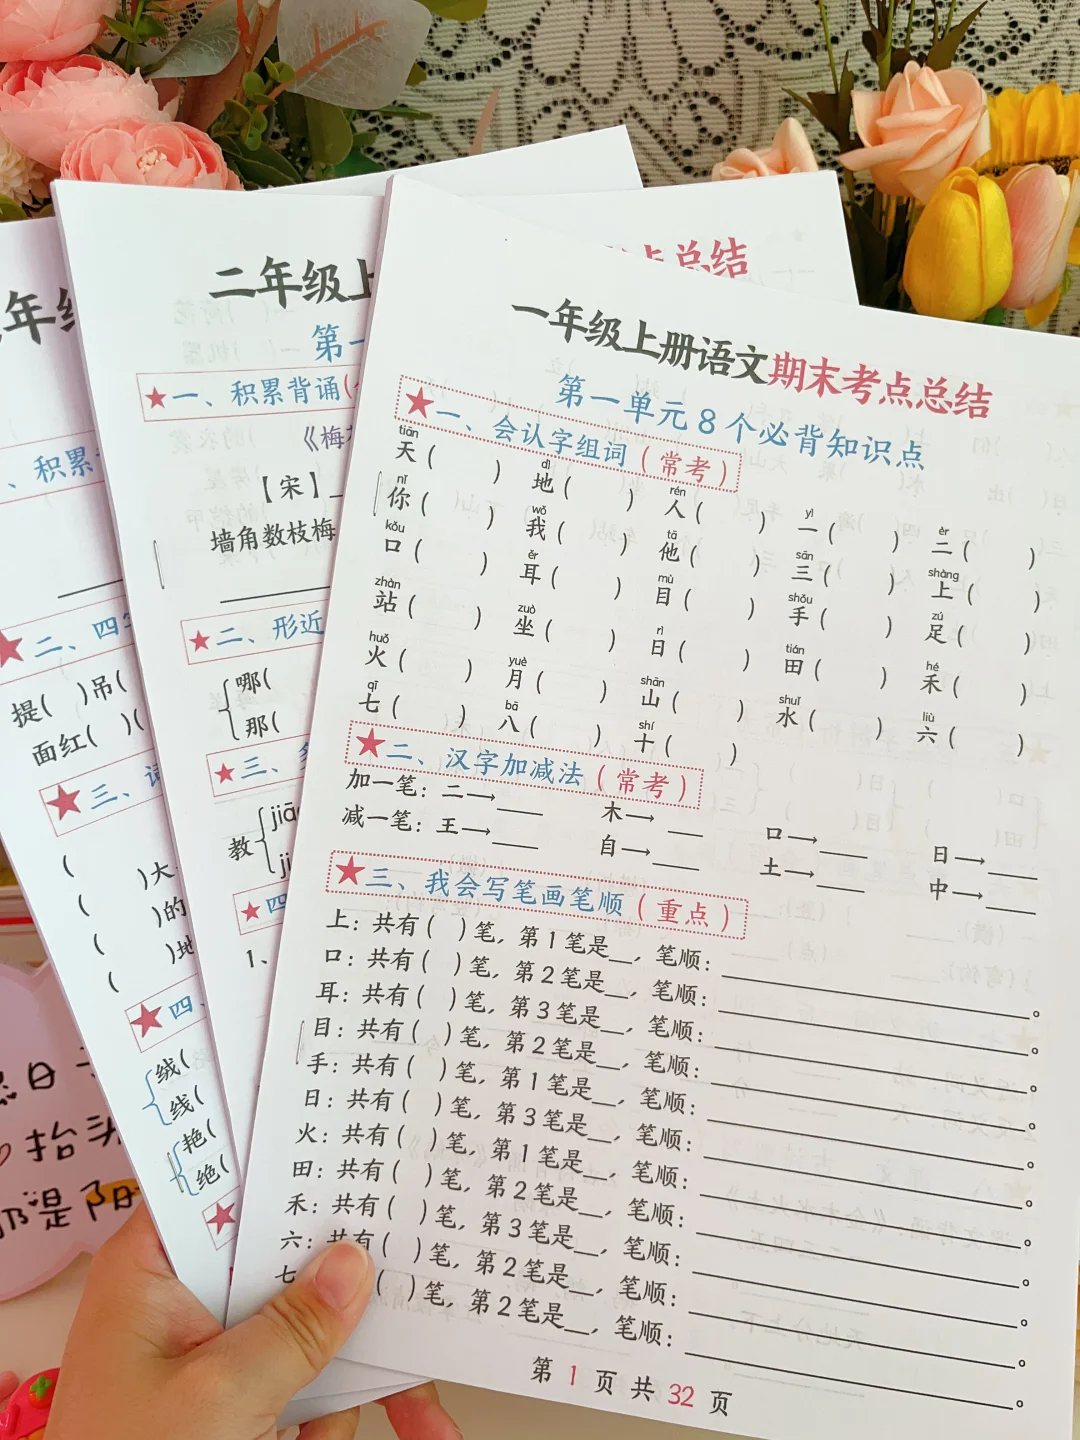 一年级上册语文期末考点总结
第一单元8个必背知识点
★一、会认字组词(常考)
tiān dì rén yī èr
天( ) 地( ) 人( ) 一( ) 二( )
nǐ wǒ tā sān shàng
你( ) 我( ) 他( ) 三( ) 上( )
kǒu ěr mù shǒu zú
口( ) 耳( ) 目( ) 手( ) 足( )
zhàn zuò rì tián hé
站( ) 坐( ) 日( ) 田( ) 禾( )
huǒ yuè shān shuǐ liù
火( ) 月( ) 山( ) 水( ) 六( )
qī bā shí
七( ) 八( ) 十( )
★二、汉字加减法(常考)
加一笔：二→____ 木→____ 口→____ 日→____
减一笔：王→____ 自→____ 土→____ 中→____
★三、我会写笔画笔顺(重点)
上：共有( )笔，第1笔是__，笔顺：____。
口：共有( )笔，第2笔是__，笔顺：____。
耳：共有( )笔，第3笔是__，笔顺：____。
目：共有( )笔，第2笔是__，笔顺：____。
手：共有( )笔，第1笔是__，笔顺：____。
日：共有( )笔，第3笔是__，笔顺：____。
火：共有( )笔，第1笔是__，笔顺：____。
田：共有( )笔，第2笔是__，笔顺：____。
禾：共有( )笔，第3笔是__，笔顺：____。
六：共有( )笔，第2笔是__，笔顺：____。
七 ( )笔，第2笔是__，笔顺：____。
第 1 页 共 32 页
点总结
二年级上
第一
★一、积累背诵(
《梅花
【宋】__
墙角数枝梅
★二、形近
哪(
那(
★三、
教 jiāo
★四
1、
年级
、积累
★二、四字
提( )吊(
面红( )(
★三、词
(
( )大
( )的
( )地
(
★四、
绒(
线(
艳(
绝(
★
日子
抬头
是阳